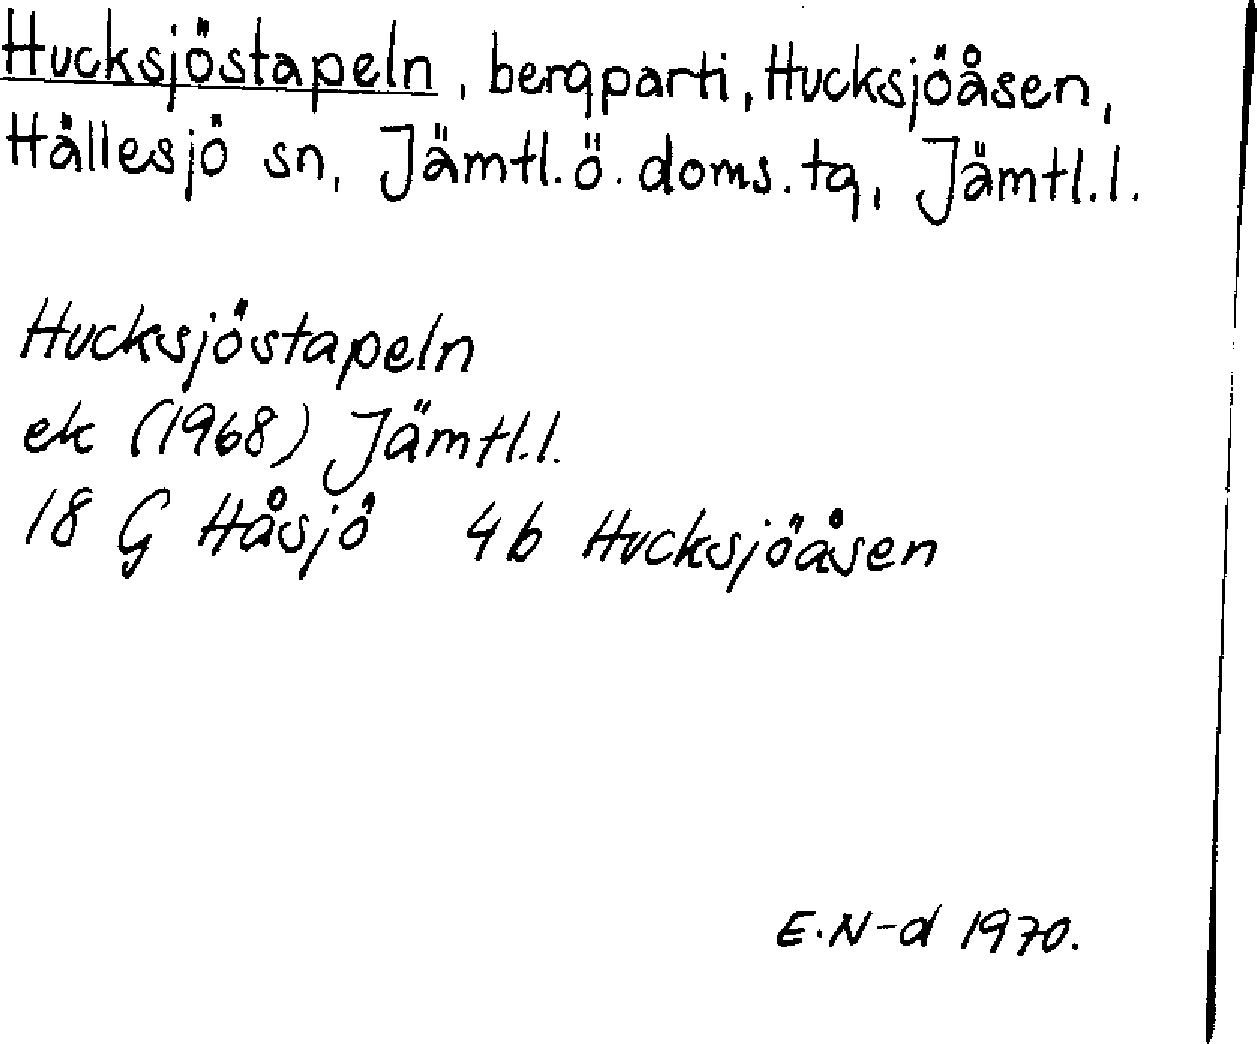 Hucksjöstapeln, bergparti, Hucksjöåsen,
Hällesjö sn, Jämtl. ö. doms. tg, Jämtl. l.
Hucksjöstapeln
ek (1968) Jämtl. l.
18 G Håsjö 4b Hucksjöåsen
E. N-d 1970.